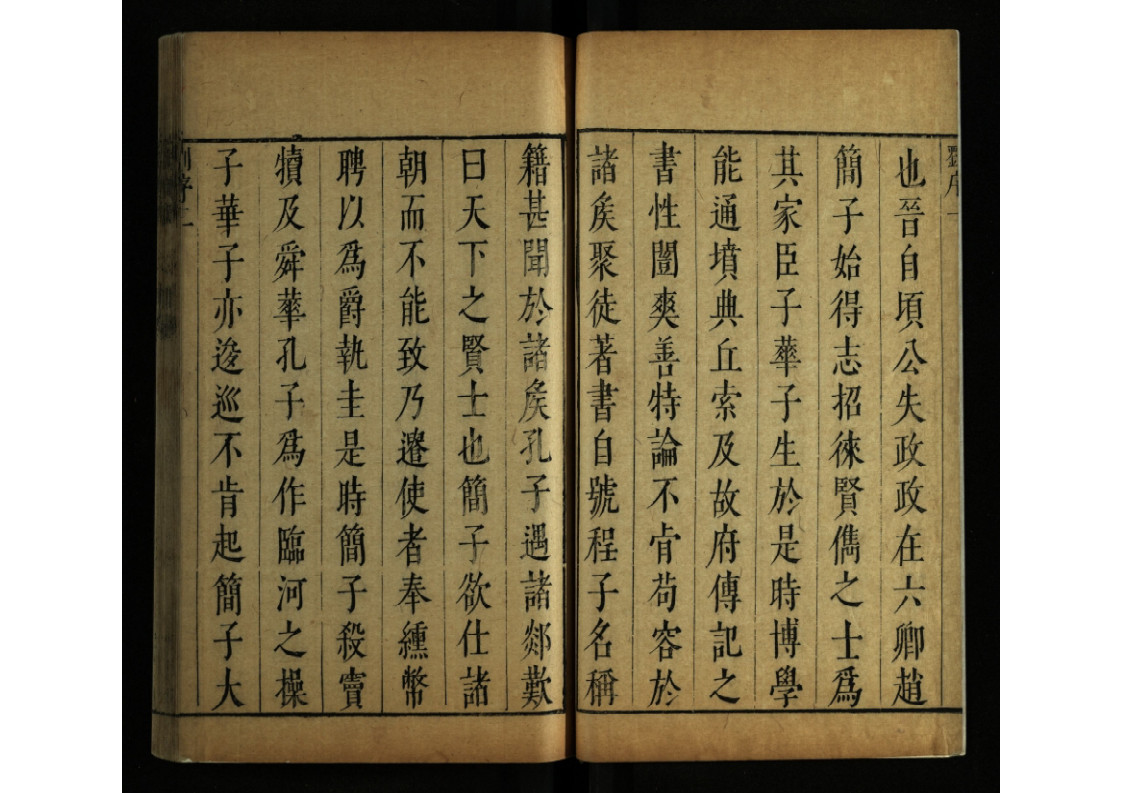 也晉自頃公失政政在六卿趙
簡子始得志招徠賢儁之士爲
其家臣子華子生於是時博學
能通墳典丘索及故府傳記之
書性闓爽善特論不肯苟容於
諸矦聚徒著書自號程子名稱
籍甚聞於諸矦孔子遇諸郯歎
曰天下之賢士也簡子欲仕諸
朝而不能致乃遣使者奉纁幣
聘以爲爵執圭是時簡子殺竇
犢及舜華孔子爲作臨河之操
子華子亦逡巡不肯起簡子大